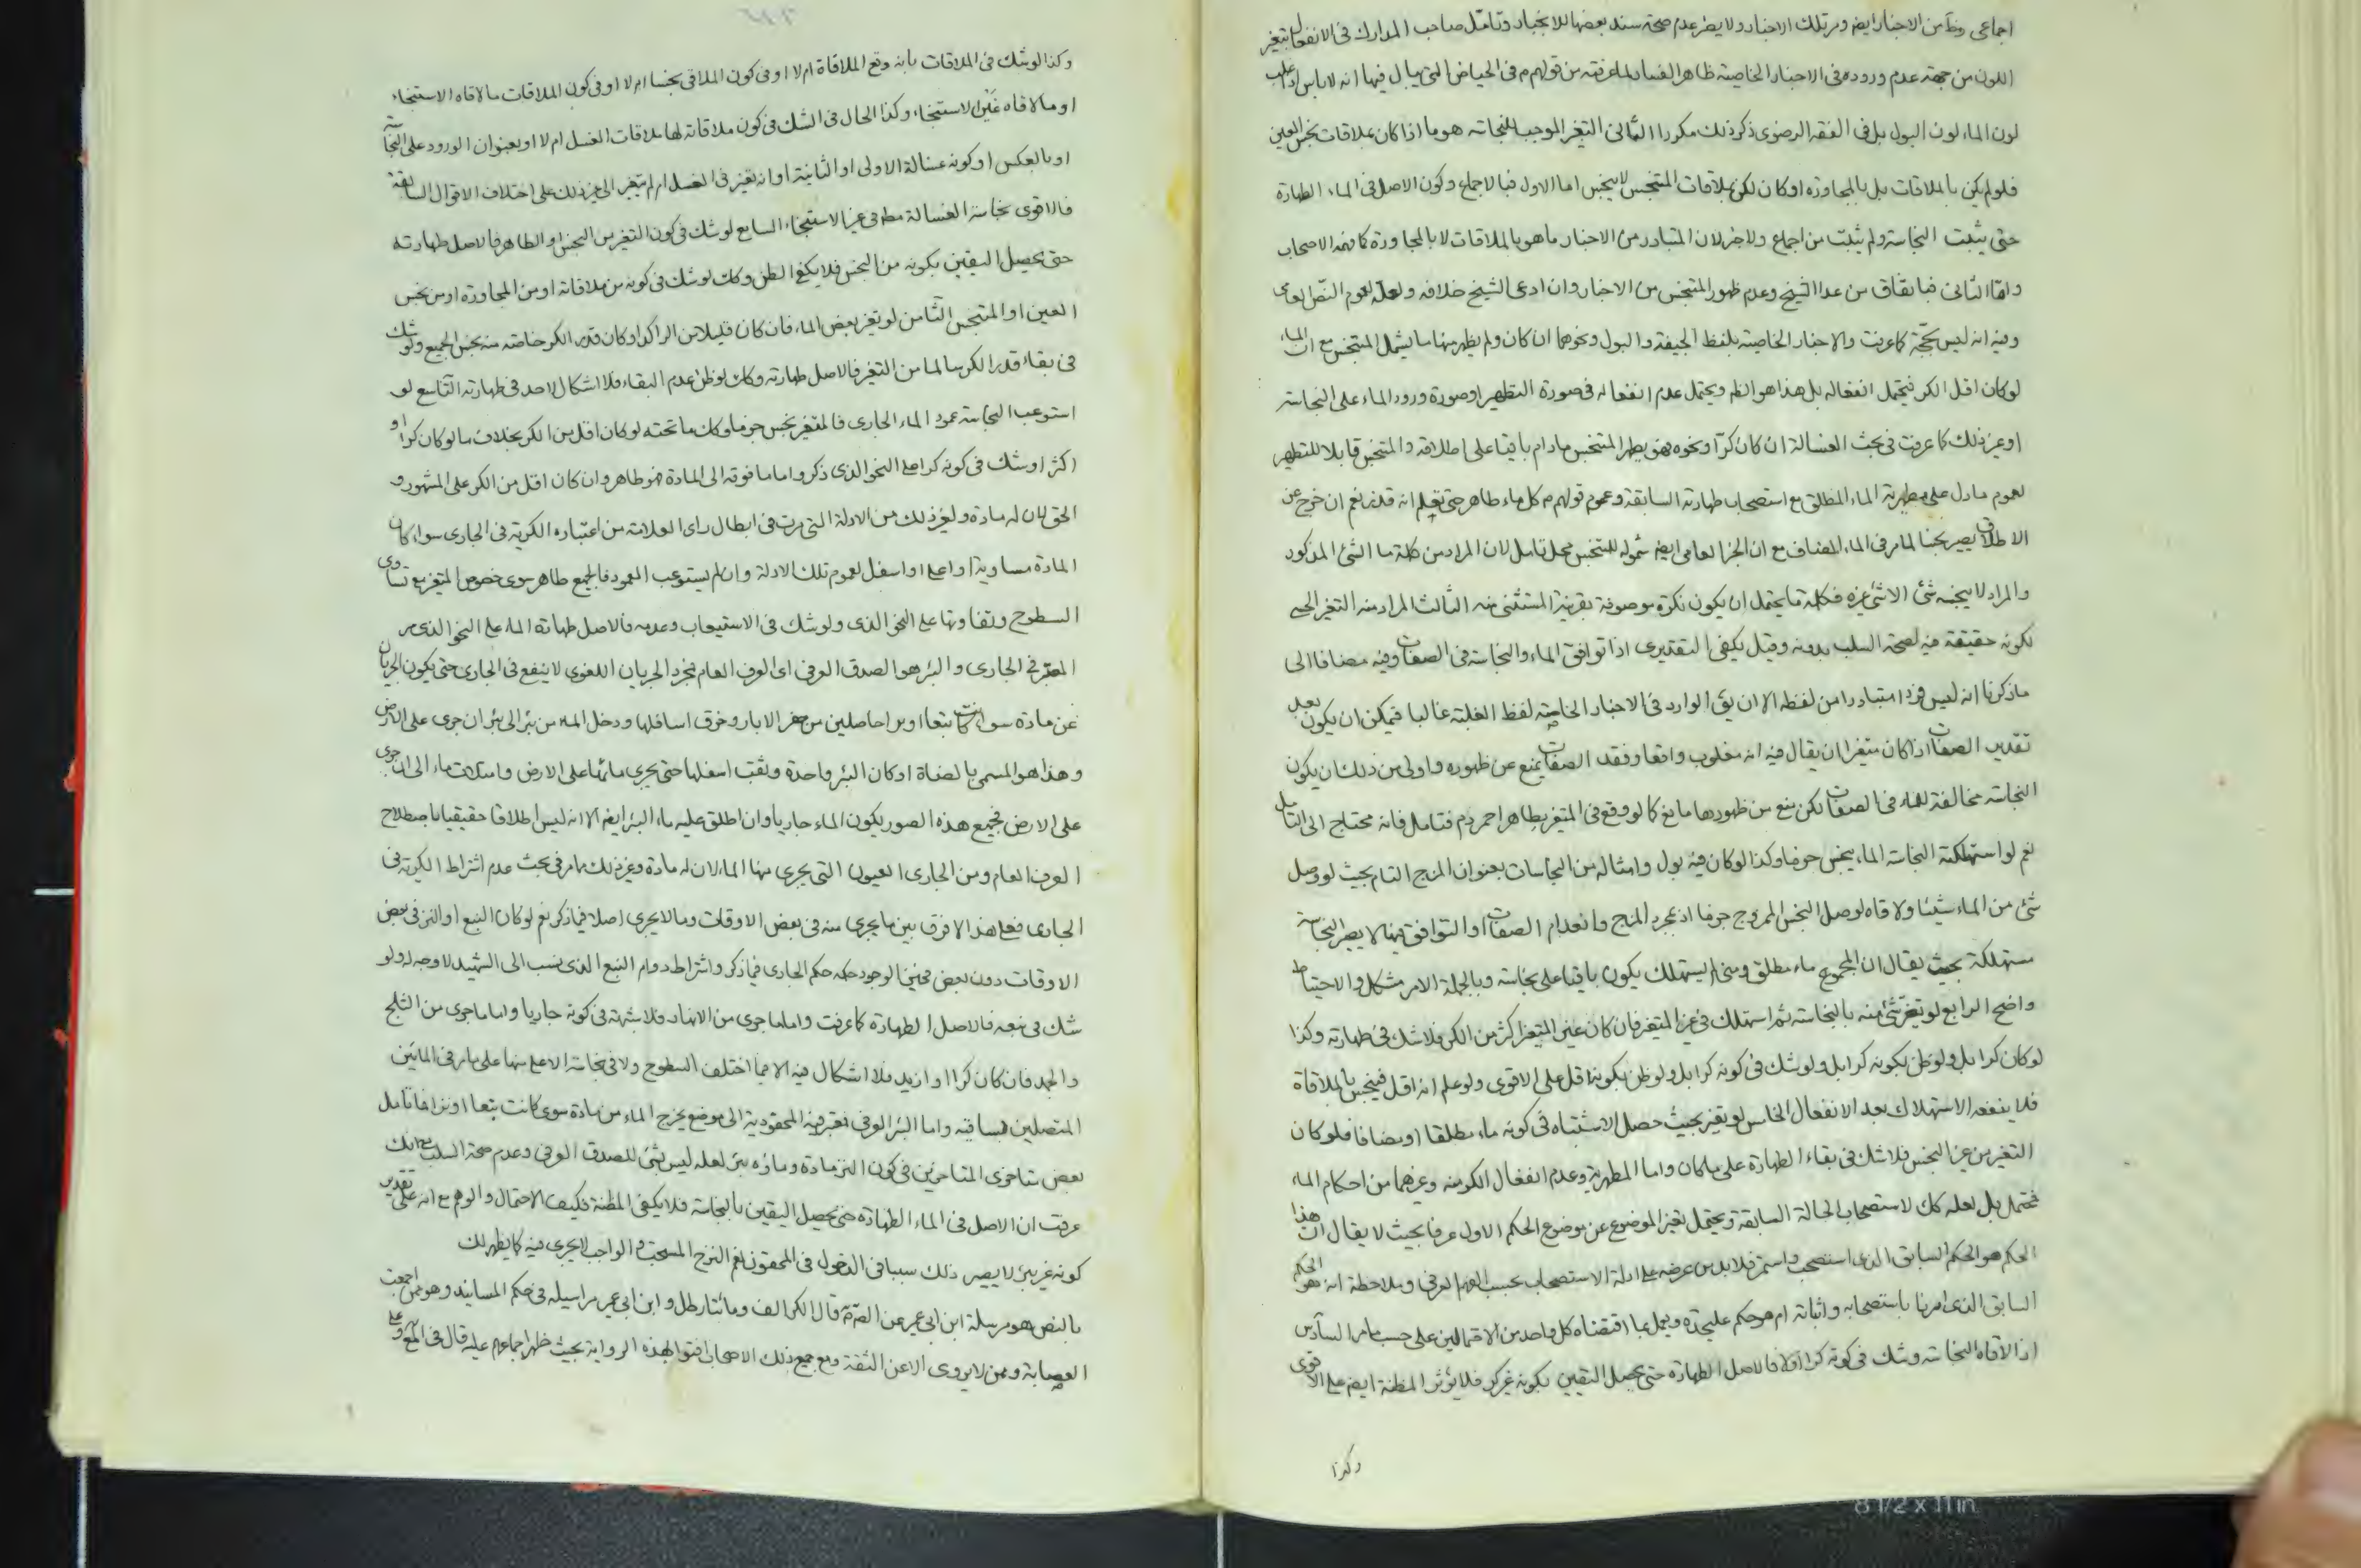 اجماعى من الاخبار ايضا ومر تلك الاخبار ولا يضر عدم صحة سند بعضها للانجبار وتامل صاحب المدارك فى الانفعال بتغير
اللون من جهة عدم وروده فى الاخبار الخاصية ظاهر الفساد لما عرفته من قولهم م فى الحياض التى يبال فيها انه لا باس اذا غلب
لون الماء لون البول بل فى الفقه الرضوى ذكر ذلك مكررا الثانى التغير الموجب للنجاته هو ما اذا كان بملاقات نجس العين
فلو لم يكن بالملاقات بل بالمجاورة او كان لكن بملاقات المتنجس لا ينجس اما الاول فبالاجماع وكون الاصل فى الماء الطهارة
حتى يثبت النجاسة ولم يثبت من اجماع ولا خبر لان المتبادر من الاخبار ما هو بالملاقات لا بالمجاورة كما فهمه الاصحاب
واما الثانى فباتفاق من عدا الشيخ وعدم ظهور المتنجس من الاخبار وان ادعى الشيخ خلافه ولعله لعموم النص العامى
وفيه انه ليس بحجة كما عرفت والاخبار الخاصية بلفظ الجيفة والبول ونحوهما ان كان ولم يظهر منها ما يشمل المتنجس مع ان الماء
لو كان اقل الكر فيحتمل انفعاله بل هذا هو الظ ويحتمل عدم انفعاله فى صورة التطهير او صورة ورود الماء على النجاسته
او غير ذلك كما عرفت فى بحث الغسالة ان كان كرا ونحوه فهو يطهر المتنجس مادام باقيا على اطلاقه والمتنجس قابلا للتطهير
لعموم ما دل على مطهرية الماء المطلق مع استصحاب طهارته السابقة وعموم قولهم م كل ماء طاهر حتى تعلم انه قذر نعم ان خرج عن
الاطلاق يصير نجسا لما مر فى الماء المضاف مع ان الخبر العامى ايضا شموله للمتنجس محل تامل لان المراد من كلمة ما الشئ المذكور
والمراد لا ينجسه شئ الا شئ غيره فكلمة ما يحتمل ان يكون نكرة موصوفة بقرينة المستثنى منه الثالث المراد منه التغير الحسى
لكونه حقيقة فيه لصحة السلب بدونه وقيل يكفى التقديرى اذا توافق الماء والنجاسة فى الصفات وفيه مضافا الى
ما ذكرنا انه ليس فردا متبادرا من لفظه الا ان يق الوارد فى الاخبار الخاصية لفظ الغلبته غالبا فيمكن ان يكون بعد
تقدير الصفات اذا كان متغيرا ان يقال فيه انه مغلوب واقعا وفقد الصفات يمنع عن ظهوره واولى من ذلك ان يكون
النجاسته مخالفة للماء فى الصفات لكن منع من ظهورها مانع كما لو وقع فى المتغير بطاهر احمر دم فتامل فانه محتاج الى التامل
نعم لو استهلكته النجاسته الماء ينجس جزما وكذا لو كان فيه بول وامثاله من النجاسات بعنوان المزج التام بحيث لو وصل
شئ من الماء شيئا ولاقاه لوصل النجس الممزوج جزما اذ بمجرد المزج وانعدام الصفات او التوافق فيها لا يصير النجاسة
مستهلكة بحيث يقال ان المجموع ماء مطلق يستهلك يكون باقيا على نجاسته وبالجملة الامر مشكل والاحتياط
واضح الرابع لو تغير شئ منه بالنجاسته ثم استهلك فى غير المتغير فان كان غير المتغير اكثر من الكر فلا شك فى طهارته وكذا
لو كان كرا بل ولو ظن بكونه كرا بل ولو شك فى كونه كرا بل ولو ظن بكونه اقل على الاقوى ولو علم انه اقل فينجس بالملاقاة
فلا ينفعه الاستهلاك بعد الانفعال الخامس لو تغير بحيث حصل الاشتباه فى كونه ماء مطلقا او مضافا فلو كان
التغير من غير النجس فلا شك فى بقاء الطهارة على ما كان واما المطهرية وعدم انفعال الكر منه وغيرهما من احكام الماء
فيحتمل بل لعله كك لاستصحاب الحالة السابقة ويحتمل تغير الموضوع عن موضوع الحكم الاول عرفا بحيث لا يقال ان هذا
الحكم هو الحكم السابق الذى استصحب واستمر فلا بد من عرضه على ادلة الاستصحاب بحسب الفهم العرفى وملاحظة انه هو الحكم
السابق الذى امرنا باستصحابه واثباته ام هو حكم عليحدة ويعمل بما اقتضاه كل واحد من الاحتمالين على حسب ما مر السادس
اذا لاقاه النجاسته وشك فى كونه كرا او لا فالاصل الطهارة حتى يحصل اليقين بكونه غير كر فلا يؤثر المظنة ايضا على الاقوى
وكذا
وكذا لو شك فى الملاقات بانه وقع الملاقاة ام لا او فى كون الملاقى نجسا ام لا او فى كون الملاقات ما لاقاه الاستنجاء
او ما لاقاه غير الاستنجاء وكذا الحال فى الشك فى كون ملاقاته لها ملاقات الغسل ام لا او بعنوان الورود على النجاسة
او بالعكس او كونه غسالة الاولى او الثانية او انه تغير فى الغسل ام لم يتغير الى غير ذلك على اختلاف الاقوال السابقة
فالاقوى نجاسة الغسالة مط فى غير الاستنجاء السابع لو شك فى كون التغير من النجس او الطاهر فالاصل طهارته
حتى يحصل اليقين بكونه من النجس فلا يكفى الظن وكك لو شك فى كونه من ملاقاته او من المجاورة او من نجس
العين او المتنجس الثامن لو تغير بعض الماء فان كان قليلا من الراكد او كان قدر الكر خاصته منه نجس الجميع ولو شك
فى بقاء قدر الكر سالما من التغير فالاصل طهارته وكك لو ظن عدم البقاء فلا اشكال لاحد فى طهارته التاسع لو
استوعب النجاسته عمود الماء الجارى فالمتغير نجس جزما وكك ما تحته لو كان اقل من الكر بخلاف ما لو كان كرا او
اكثر او شك فى كونه كرا على النحو الذى ذكر واما ما فوقه الى المادة فهو طاهر وان كان اقل من الكر على المشهور و
الحق لان له مادة ولغير ذلك من الادلة التى مرت فى ابطال راى العلامة من اعتباره الكرية فى الجارى سواء كان
المادة مساوية او اعلى او اسفل لعموم تلك الادلة وان لم يستوعب العمود فالجميع طاهر سوى خصوص المتغير مع تساوى
السطوح وتفاوتها على النحو الذى ولو شك فى الاستيعاب وعدمه فالاصل طهارة الماء على النحو الذى مر
المعتبر فى الجارى والبئر هو الصدق العرفى اى العرف العام فمجرد الجريان اللغوى لا ينفع فى الجارى حتى يكون الجريان
عن مادة سواء كانت نبعا او نزا حاصلين من حفر الابار وخرق اسافلها ودخل الماء من بئر الى بئر ان جرى على الارض
وهذا هو المسمى بالقناة او كان البئر واحدة وثقب اسفلها حتى يجرى مائها على الارض وامتلات ماء الى ان جرى
على الارض فجميع هذه الصور يكون الماء جاريا وان اطلق عليه ماء البئر ايضا الا انه ليس اطلاقا حقيقيا باصطلاح
العرف العام ومن الجارى العيون التى يجرى منها الماء لان له مادة وغير ذلك مما مر فى بحث عدم اشتراط الكرية فى
الجارى فعلى هذا لا فرق بين ما يجرى منه فى بعض الاوقات وما لا يجرى اصلا فيما ذكر نعم لو كان النبع او النز فى بعض
الاوقات دون بعض فحين الوجود حكمه حكم الجارى فيما ذكر واشتراط دوام النبع الذى نسب الى الشهيد لا وجه له ولو
شك فى نبعه فالاصل الطهارة كما عرفت واما ما جرى من الانهار فلا شبهة فى كونه جاريا واما ما جرى من الثلج
والجمد فان كان كرا او ازيد فلا اشكال فيه الا فيما اختلف السطوح ولا فى نجاسة الاعلى منها على ما مر فى المائين
المتصلين بساقية واما البئر العرفى فيعتبر فيه المحقودية الى موضع يخرج الماء من مادة سوى كانت نبعا او نزا فما تامل
بعض متاخرى المتاخرين فى كون النز مادة وماؤه بئر لعله ليس بشئ للصدق العرفى وعدم صحة السلب مع انك
عرفت ان الاصل فى الماء الطهارة حتى يحصل اليقين بالنجاسة فلا يكفى المظنة فكيف الاحتمال والوهم مع انه على تقدير
كونه غير بئر لا يصير ذلك سببا فى الدخول فى المحقون نعم النزح المستحب او الواجب لا يجرى فيه كما يظهر لك
بالنص هو مرسلة ابن ابى عمير عن الص م قال الكر الف ومائتا رطل وابن ابى عمير مراسيله فى حكم المسانيد وهو ممن اجمعت
العصابة وممن لا يروى الا عن الثقة ومع جميع ذلك الاصحاب افتوا بهذه الرواية بحيث ظهر اجماعهم عليه قال فى